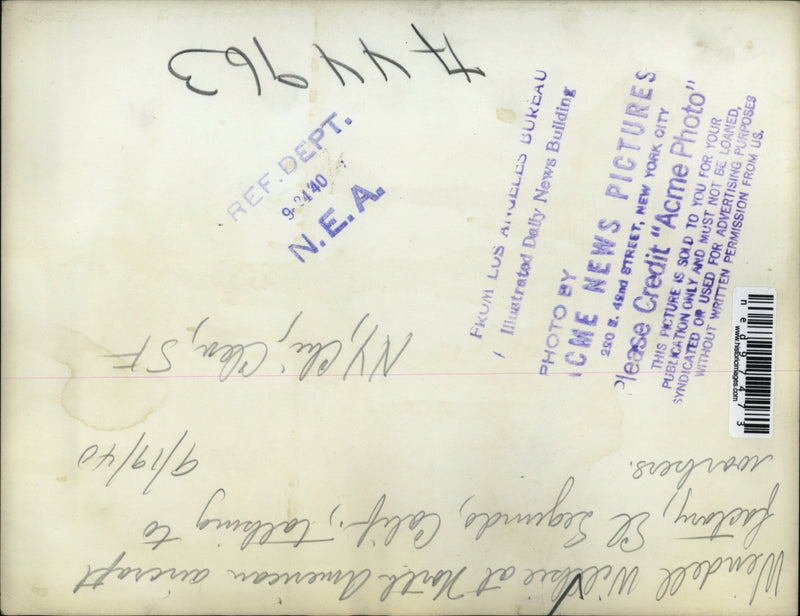 Wendell Willkie at North American aircraft
factory, El Segundo, Calif., talking to
workers.
9/19/40
NY, Chi, Clev, SF
A44963
REF. DEPT.
9-24'40
N.E.A.
FROM LOS ANGELES BUREAU
Illustrated Daily News Building
PHOTO BY
CME NEWS PICTURES
220 E. 42nd STREET, NEW YORK CITY
Please Credit "Acme Photo"
THIS PICTURE IS SOLD TO YOU FOR YOUR
PUBLICATION ONLY AND MUST NOT BE LOANED,
SYNDICATED OR USED FOR ADVERTISING PURPOSES
WITHOUT WRITTEN PERMISSION FROM US.
www.historicimages.com
ned97473